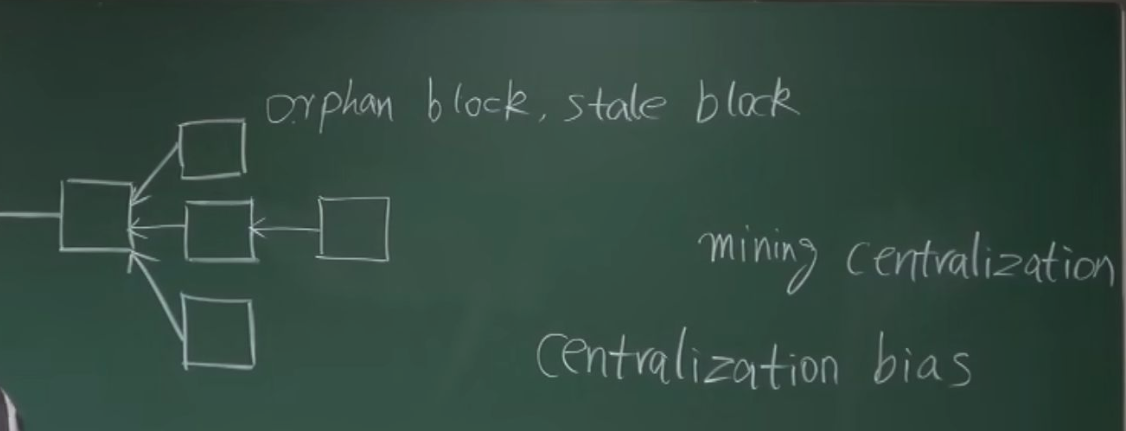 orphan block, stale block
mining centralization
centralization bias